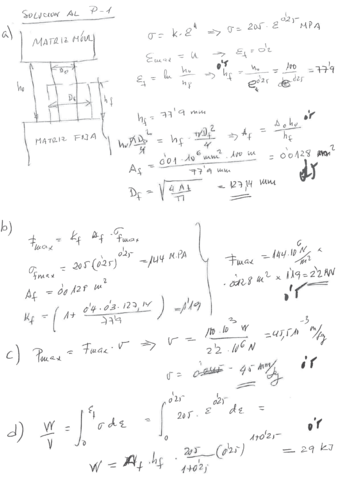 SOLUCION AL P-1
a)
MATRIZ MÓVIL
MATRIZ FIJA
h₀
D₀
D_f
h_f
σ = k·ε^n ⇒ σ = 205·ε^0'25 MPA
ε_max = n ⇒ ε_f = 0'25
ε_f = ln h₀/h_f ⇒ h_f = h₀/e^0'25 = 100/e^0'25 = 77'9
h_f = 77'9 mm
h₀ πD₀²/4 = h_f · πD_f²/4 ⇒ A_f = A₀ h₀/h_f
A_f = 0'01·10⁶ mm² · 100 m / 77'9 mm = 0'0128 m²
D_f = √(4 A_f/π) = 127,4 mm
b)
F_max = K_f A_f · σ_f max
σ_f max = 205 (0'25)^0'25 = 144 MPA
A_f = 0'0125 m²
K_f = (1 + 0'4·0'3·127,4/77'9) = 1'19
F_max = 144·10⁶ N/m² ×
· 0128 m² × 1'19 = 2'2 MN
c) P_max = F_max · v ⇒ v = 100·10³ W / 2'2·10⁶ N = 45,5·10⁻³ m/s
v = 45 mm/s
d) W/V = ∫₀^εf σ dε = ∫₀^0'25 205·ε^0'25 dε =
W = A_f · h_f · 205/(1+0'25) (0'25)^1+0'25 = 29 kJ